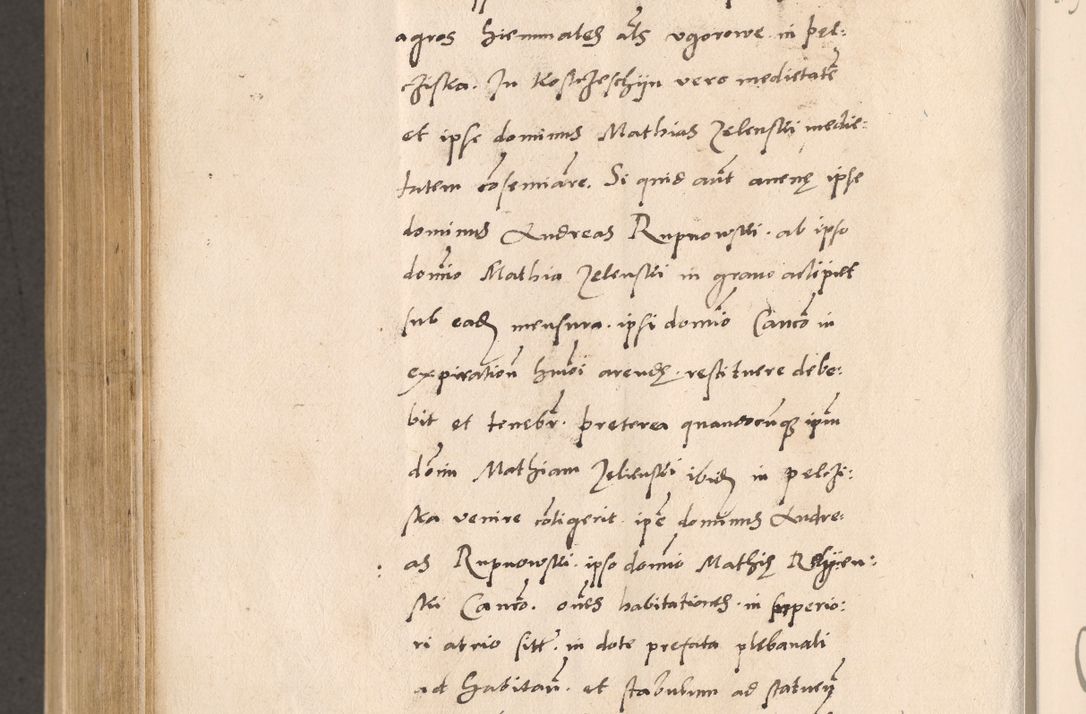 agros hiemmales als ugorowe in pel:
cziska. In Kosczieschijn vero medietatē
et ipse dominus Mathias Zelenski medie:
tatem cōseminare. Si quid aūt avenę ipse
dominus Andreas Rupnowski. ab ipso
domīo Mathia Zelenski in grano accipiet
sub eadē mensura. ipsi domīo Canco in
expiration hmōi arendę. restituere debe:
bit et tenebr. preterea quandocunq ipm
dōm Mathiam Zelienski ibidē in pelczi:
ska venire cōtigerit. ipse dominus Andre:
as Rupnowski. ipso domīo Mathię
ski Canco. oēs habitationes. in superio:
ri atrio sitt. in dote prefata plebanali
ad habitan. et stabulum ad statuen